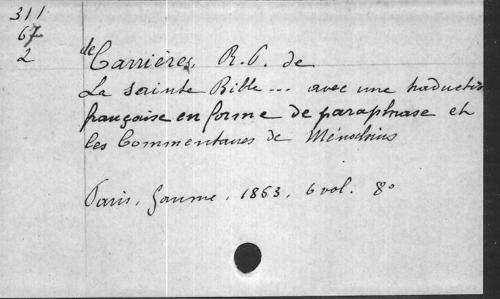 311
67
2
de Carrières, R. P. de
La Sainte Bible ... avec une traduction
française en forme de paraphrase et
les Commentaires de Ménochius
Paris, Gaume, 1863, 6 vol. 8o